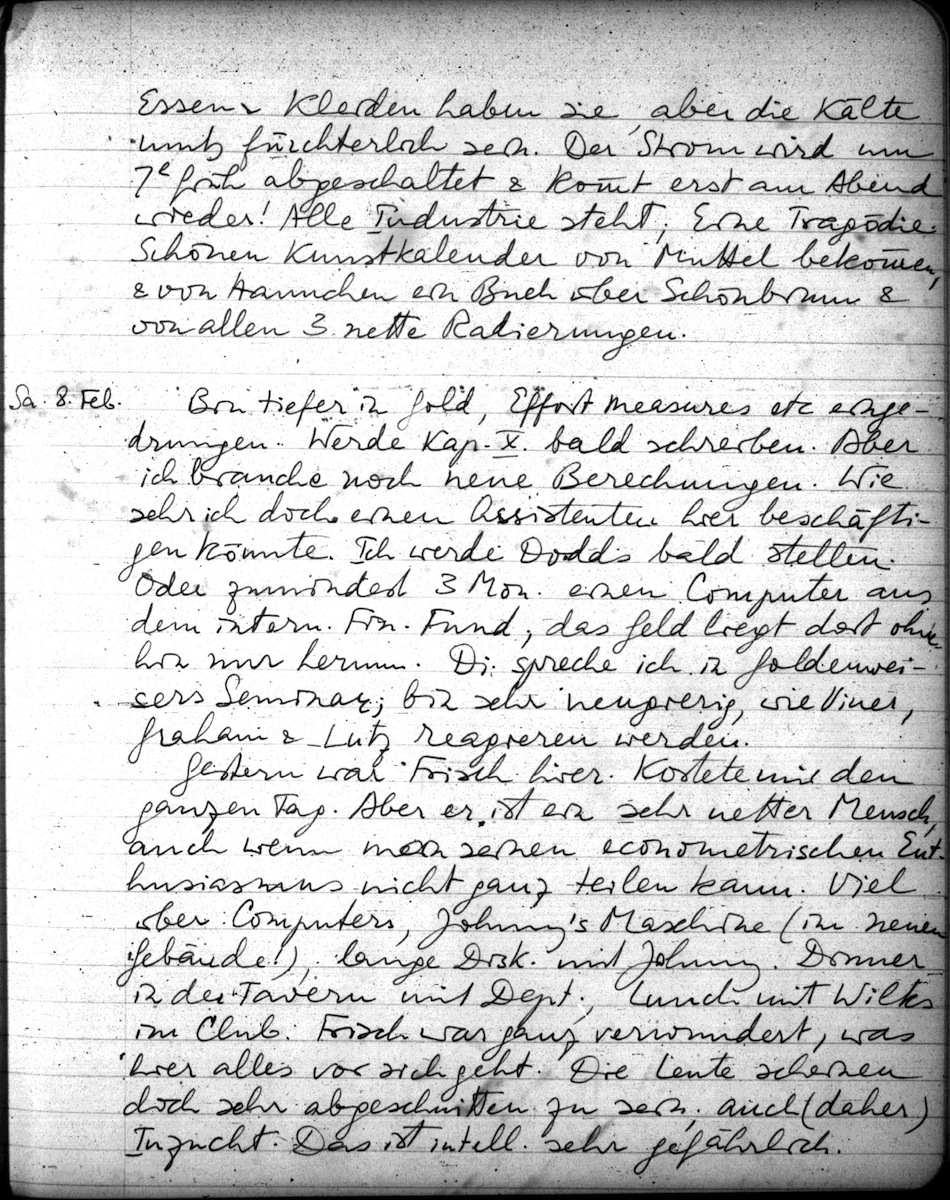 Essen & Kleiden haben sie, aber die Kälte
muß fürchterlich sein. Der Strom wird um
7h früh abgeschaltet & kom̄t erst am Abend
wieder! Alle Industrie steht; Eine Tragödie.
Schönen Kunstkalender von Muttel bekom̄en,
& von Hannchen ein Buch über Schönbrunn &
von allen 3 nette Radierungen.
Sa. 8. Feb. Bin tiefer in Gold, Effort measures etc einge-
drungen. Werde Kap. X. bald schreiben. Aber
ich brauche noch neue Berechnungen. Wie
sehr ich doch einen Assistenten hier beschäfti-
gen könnte. Ich werde Dodds bald stellen.
Oder zumindest 3 Mon. einen Computer aus
dem intern. Fin. Fund, das Geld liegt dort ohne-
hin nur herum. Di. spreche ich in Goldenwei-
sers Seminar; bin sehr neugierig, wie Viner,
Graham & Lutz reagieren werden.
Gestern war Frisch hier. Kostete mir den
ganzen Tag. Aber er ist ein sehr netter Mensch,
auch wenn man seinen econometrischen Ent-
husiasmus nicht ganz teilen kann. Viel
über Computers, Johnny's Maschine (im neuen
Gebäude!), lange Disk. mit Johnny. Dinner
in der Tavern mit Dept., Lunch mit Wilks
im Club. Frisch war ganz verwundert, was
hier alles vor sich geht. Die Leute scheinen
doch sehr abgeschnitten zu sein, auch (daher)
Inzucht. Das ist intell. sehr gefährlich.